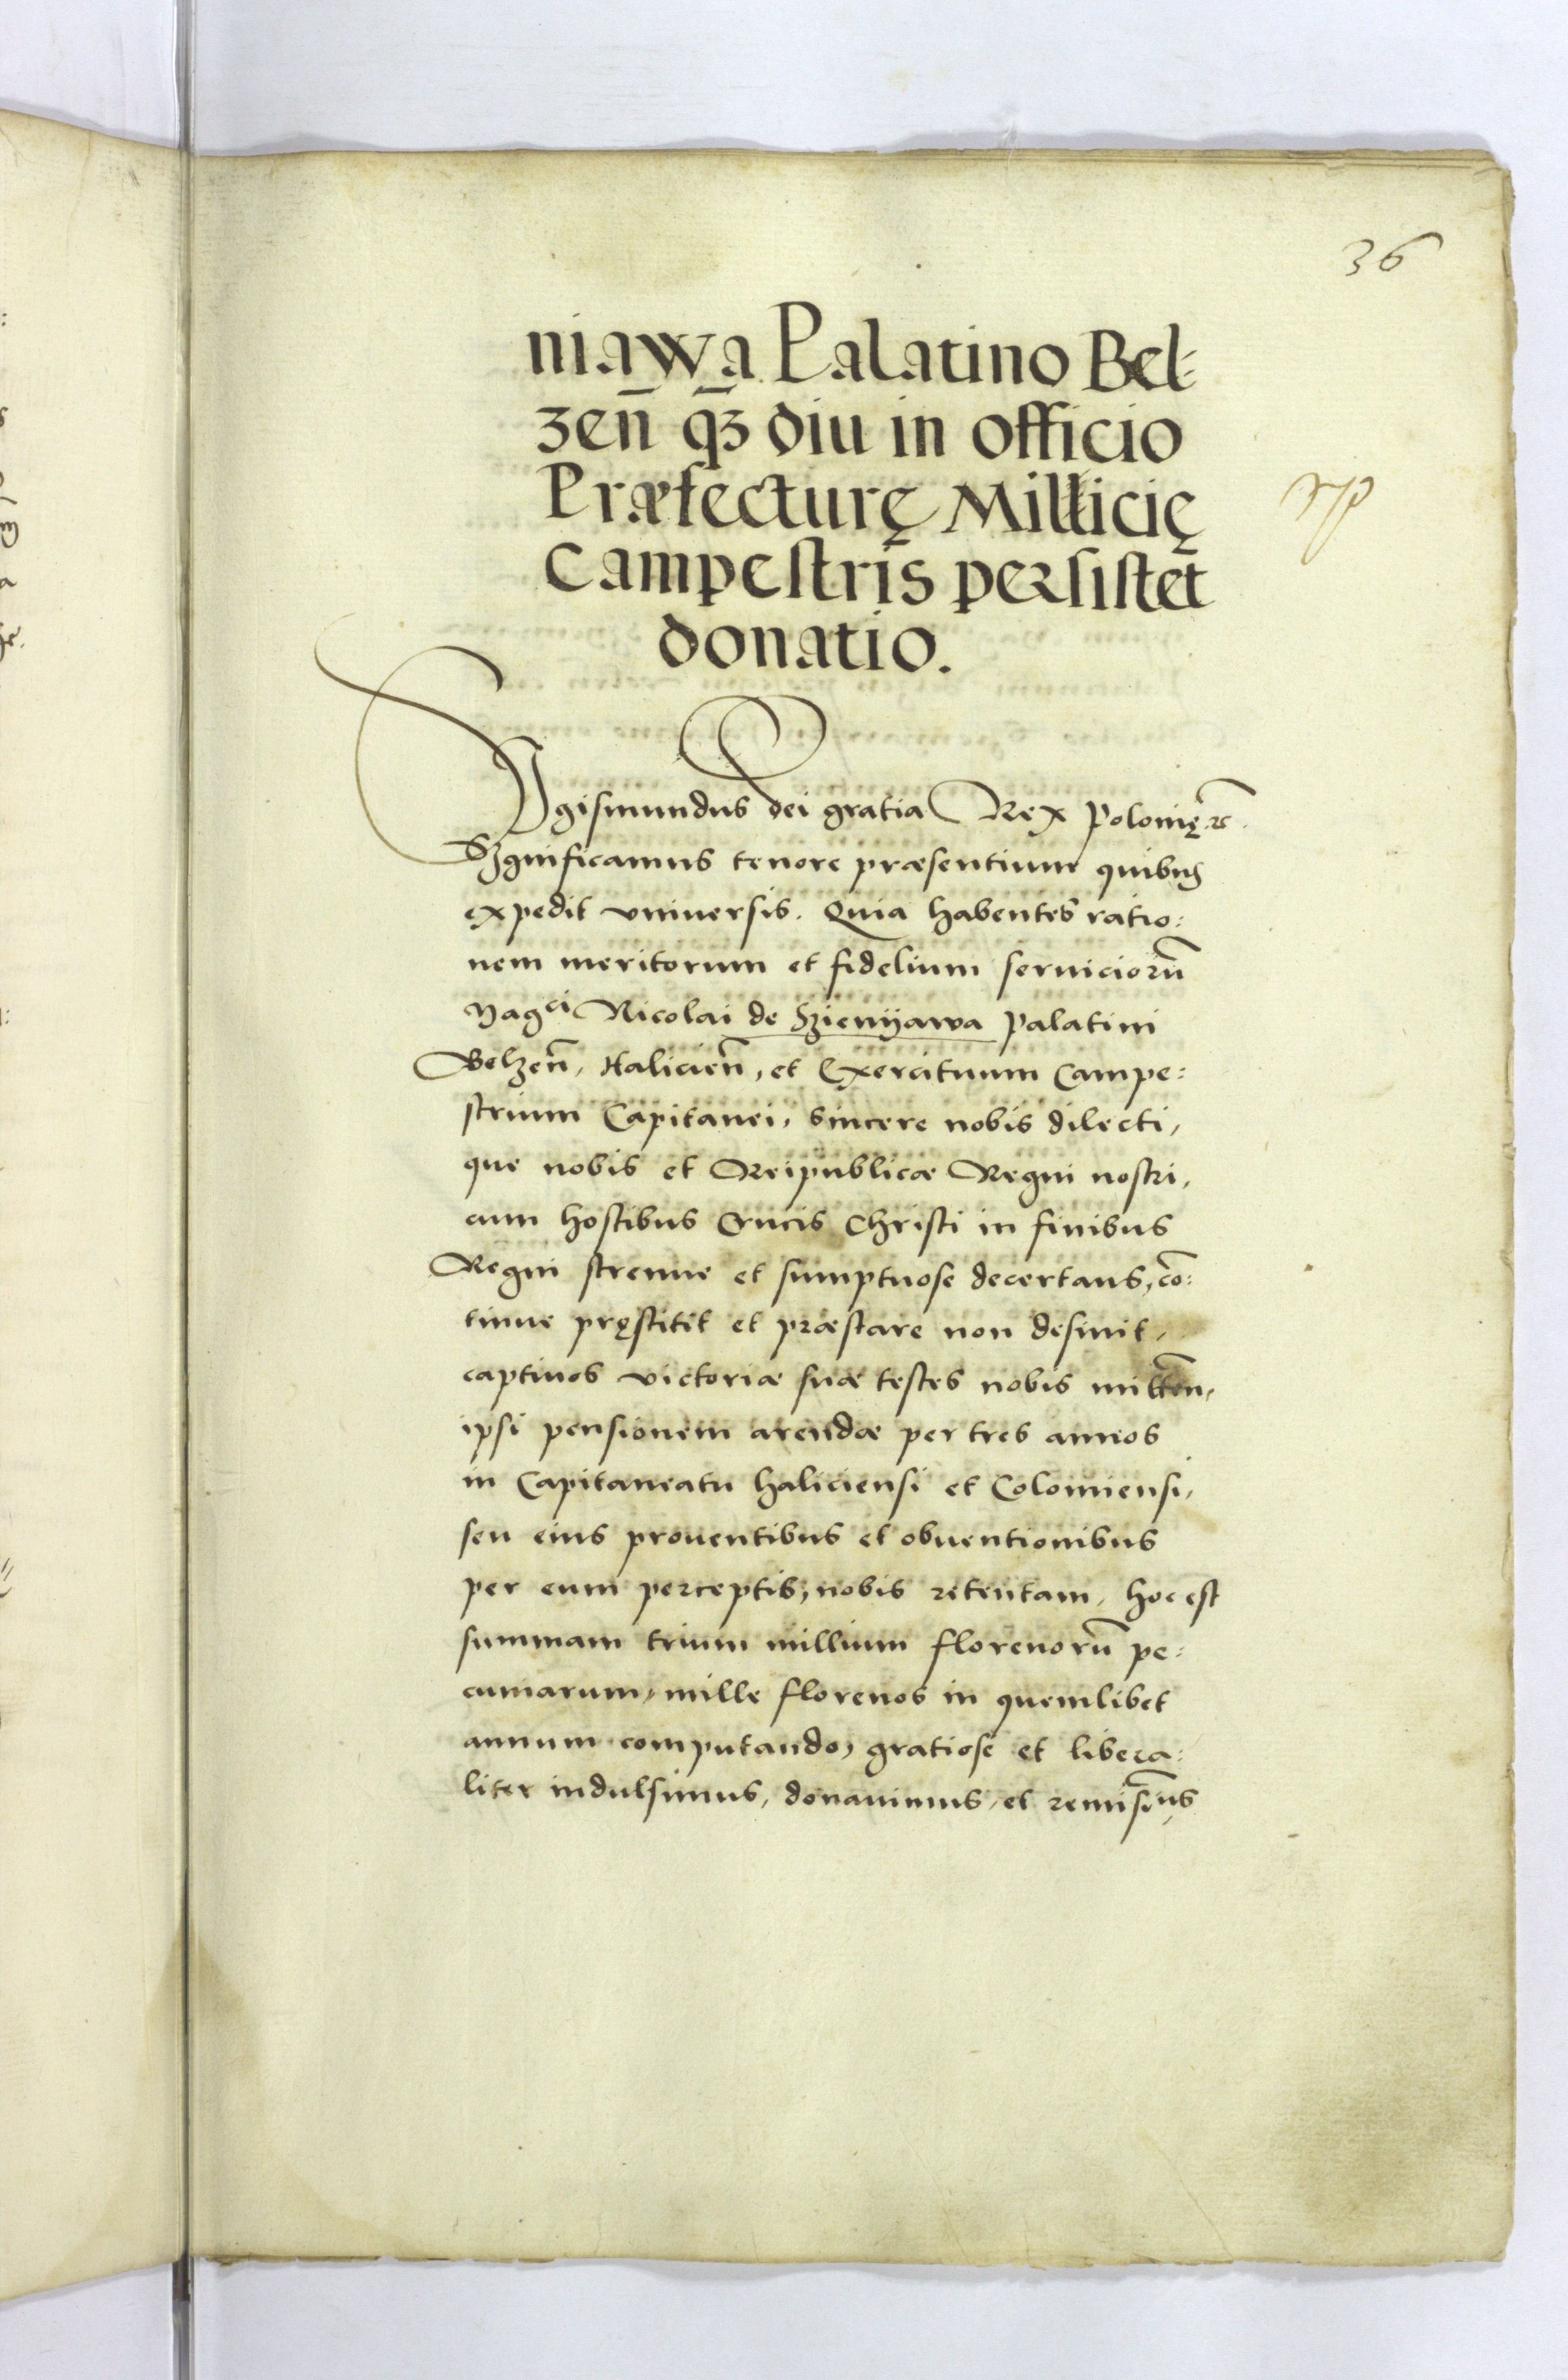 36
niawa Palatino Bel⸗
zen̄ qꝫ diu in officio
Præfecturę Millicię
Campestris persistet
donatio.
Sigismundus dei gratia Rex Polonię ꝛc̄.
Significamus tenore præsentium quibus
expedit vniuersis. Quia habentes ratio:
nem meritorum et fidelium seruiciorū
Magci Nicolai de Szienijawa Palatini
Belzen̄, Halicien̄, et Exercituum Campe:
strium Capitanei, sincere nobis dilecti,
que nobis et Reipublicæ Regni nostri,
cum hostibus Crucis Christi in finibus
Regni strenue et sumptuose decertans, cō:
tinue pręstitit et præstare non desinit,
captiuos victoriæ suæ testes nobis mitten̄,
ipsi pensionem arendæ per tres annos
in Capitaneatu haliciensi et Colomiensi,
seu eius prouentibus et obuentionibus
per eum perceptis, nobis retentam, hoc est
summam trium millium florenorū pe:
cuniarum, mille florenos in quemlibet
annum computando, gratiose et libera:
liter indulsimus, donauimus, et remisim̄us